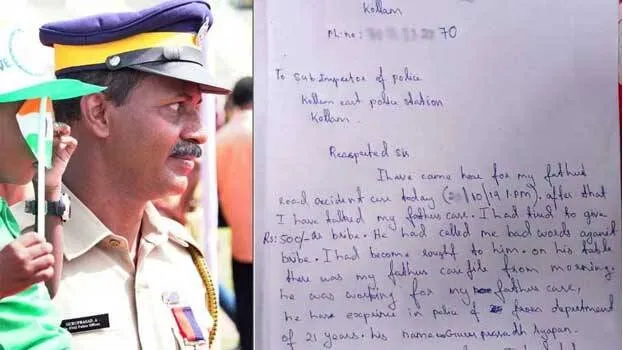 GURUPRASAD. A
Civil Police Officer
Kollam
Ph.no: 70
To Sub inspector of police
Kollam east police station
Kollam.
Reaspected sir
I have came hear for my father
road accident case today ( /10/19 1.pm). after that
I have talked my fathers case. I had tried to give
Rs: 500/- as bribe. He had called me bad words against
bribe. I had become rought to him, on his table
there was my fathers case file from morning.
he was working for my fathers case,
he have exprience in police of from department
of 21 years. his name is Guru prasadh Ayyapan.